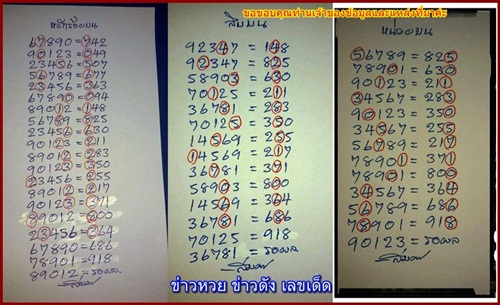 ขอขอบคุณท่านเจ้าของข้อมูลและแหล่งที่มาค่ะ
หลักร้อยบน
67890 = 742
90123 = 049
23456 = 507
56789 = 677
23456 = 363
67890 = 094
89012 = 148
56789 = 825
23456 = 630
90123 = 211
89012 = 283
90123 = 350
23456 = 255
89012 = 217
90123 = 371
89012 = 800
23456 = 364
67890 = 686
78901 = 918
89012 = รอผล
สิบบน
92347 = 148
92347 = 825
58903 = 630
70125 = 211
36781 = 283
70125 = 350
14569 = 255
14569 = 217
36781 = 371
58903 = 800
14569 = 364
36781 = 686
70125 = 918
36781 = รอผล
หน่วยบน
56789 = 825
78901 = 630
90123 = 211
34567 = 283
90123 = 350
34567 = 255
56789 = 217
78901 = 371
78901 = 800
34567 = 364
56789 = 686
78901 = 918
90123 = รอผล
ข่าวหวย ข่าวดัง เลขเด็ด